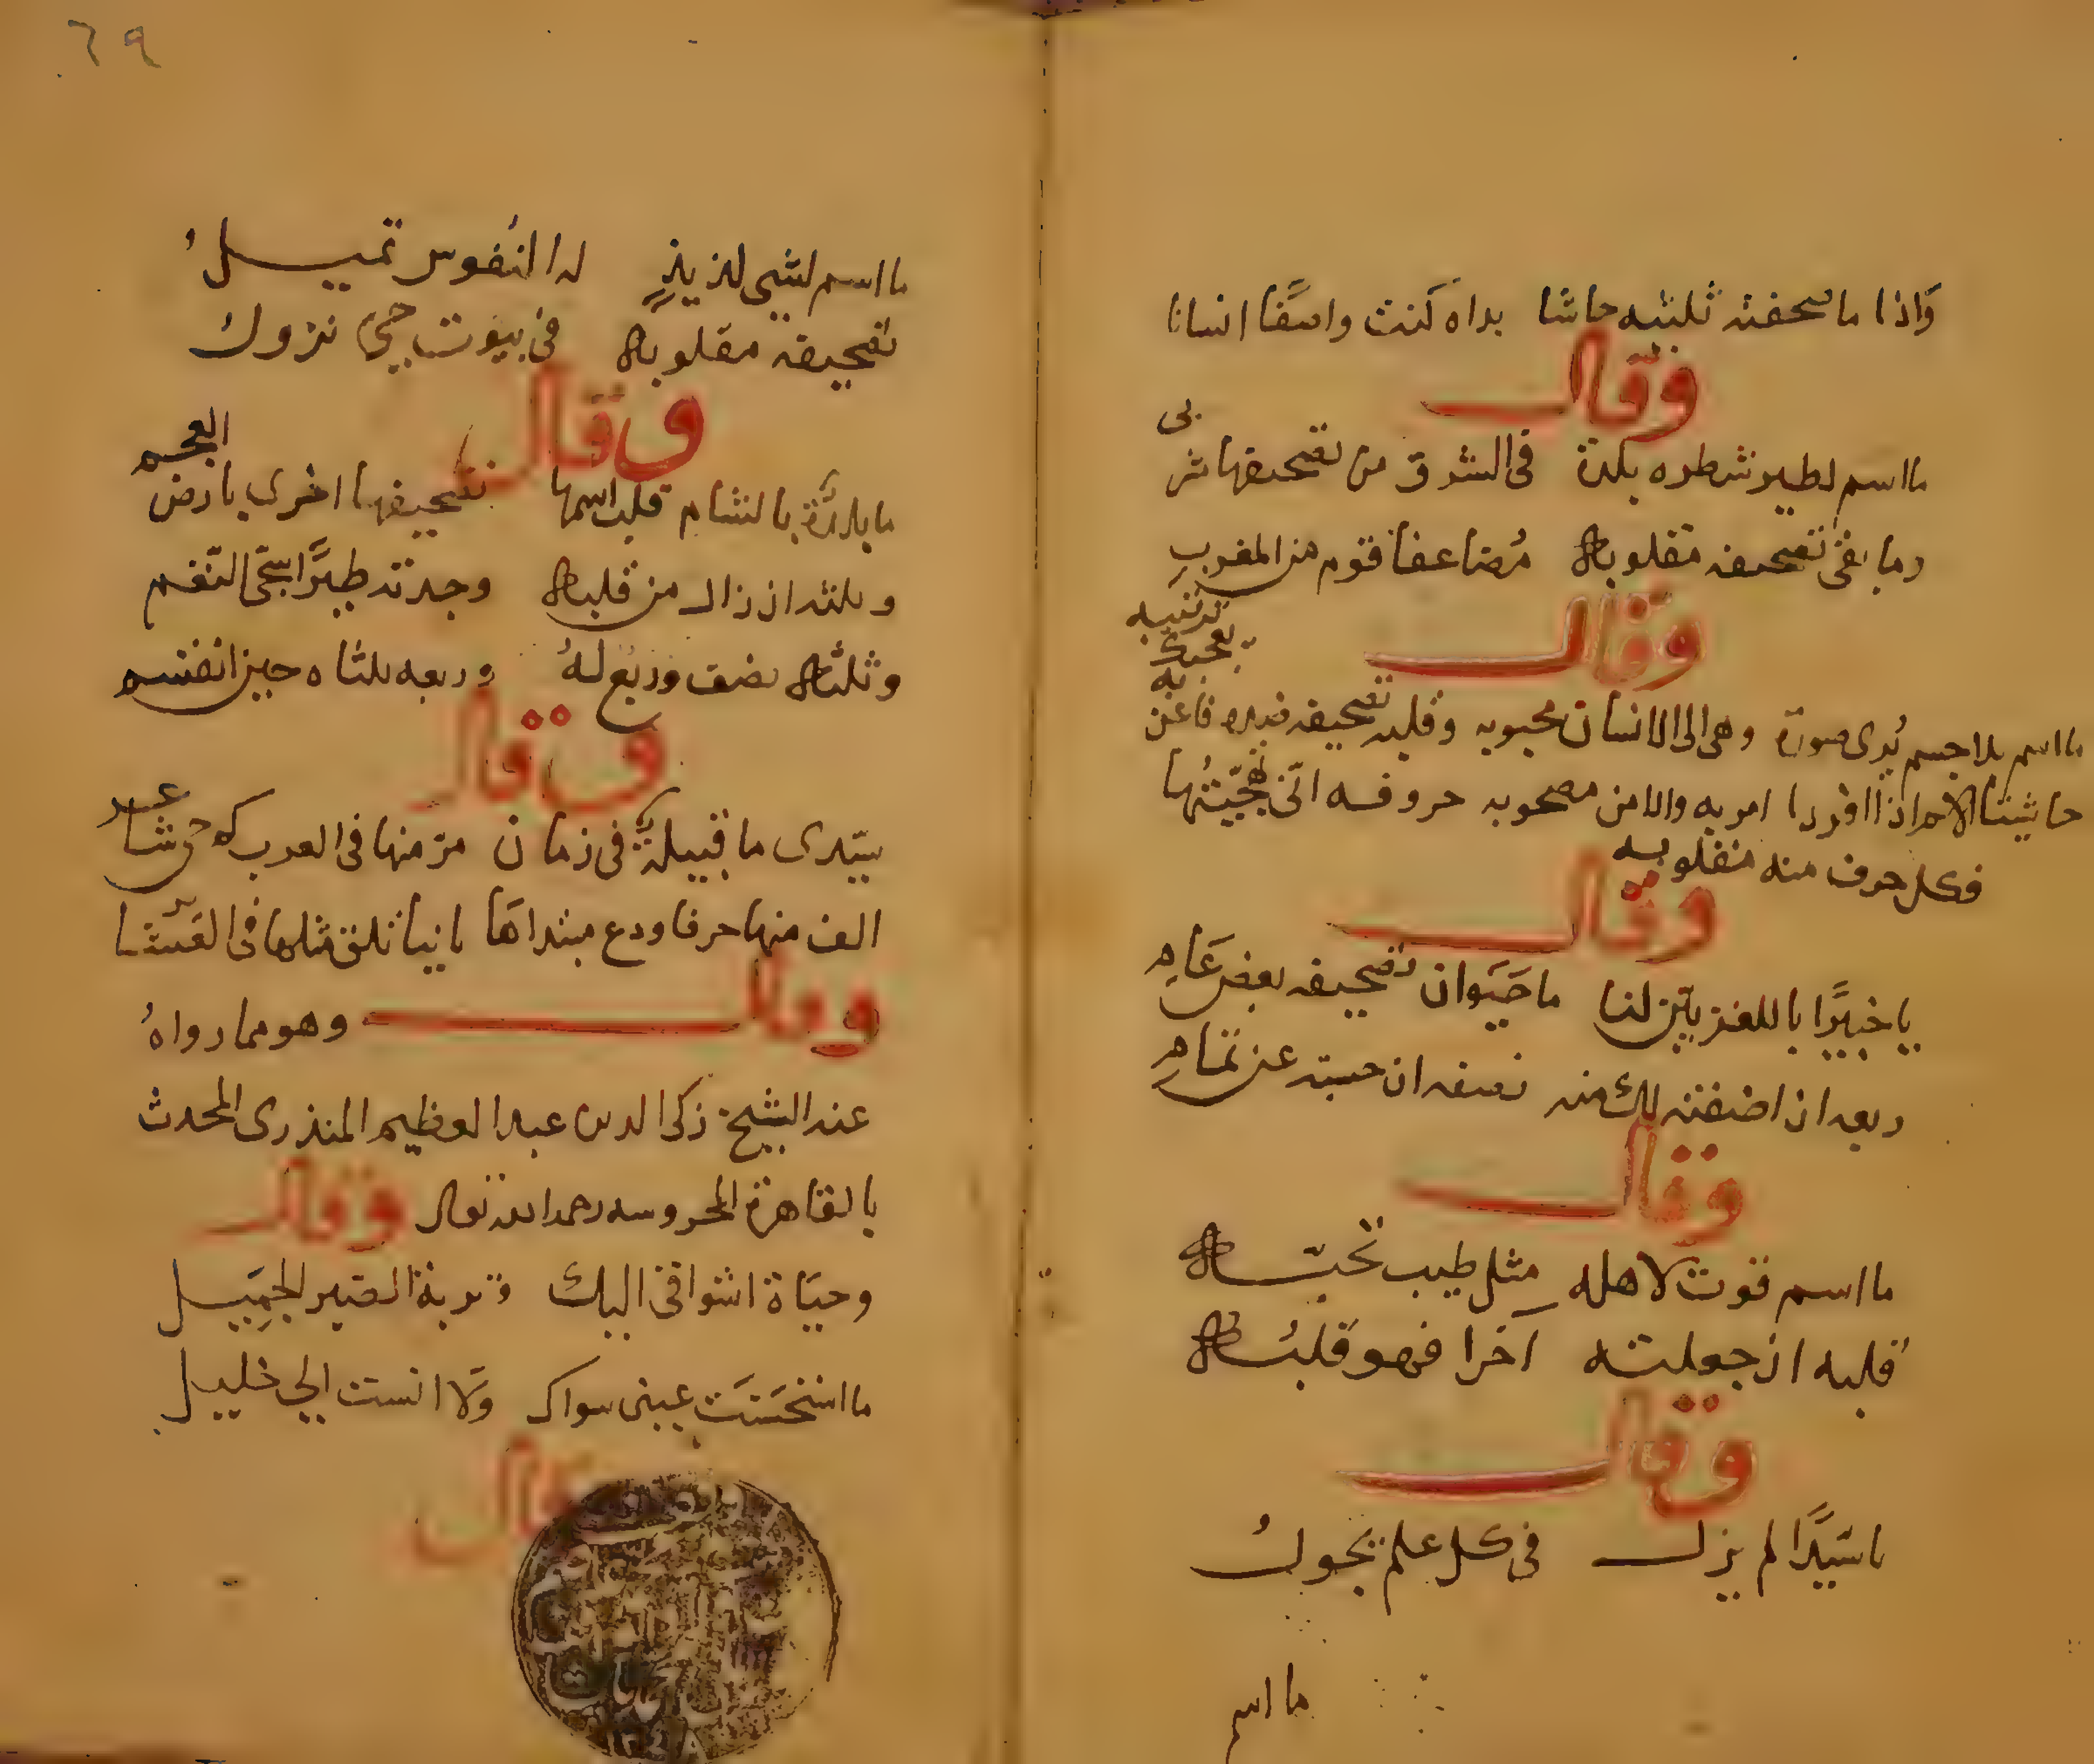 واذا ما صحفت ثلثيه حاشا بداه كنت واصفا انسانا
وقال
ما اسم لطير شطره بلدة في الشرق من تصحيفها مشربي
وما بقى تصحيف مقلوبه مضاعفا قوم من المغرب
وقال
ما اسم بلا جسم يرى صورة وهي الى الانسان محبوبه وقلبه تصحيفه ضده فاعن به يعجبك ترتيبه
حاشيتا الاسم اذا افردا امر به والامن مصحوبه حروفه انى تهجيتها
فكل حرف منه مقلوبه
وقال
يا خبيرا باللغز بين لنا ما حيوان تصحيفه بعض عام
ربعه ان اضفته لك منه نصفه ان حسبته عن تمام
وقال
ما اسم قوت لاهله مثل طيب تحبه
قلبه ان جعلته آخرا فهو قلبه
وقال
يا سيدا لم يزل في كل علم يجول
ما اسم
٦٩
ما اسم لشي لذيذ له النفوس تميل
تصحيف مقلوبه في بيوت حي نزول
وقال
ما بلدة بالشام قلب اسمها تصحيفها اخرى بارض العجم
وثلثه ان زال من قلبه وجدته طيرا شجى النغم
وثلثه نصف وربع له وربعه ثلثاه حين انقسم
وقال
سيدى ما قبيلة في زمان مر منها في العرب كم حي شاعر
الق منها حرفا ودع مبتداها ثانيا تلق مثلها في العشائر
وقال وهو مما رواه
عنه الشيخ زكى الدين عبد العظيم المنذرى المحدث
بالقاهرة المحروسه رحمه الله تعالى وقال
وحياة اشواقى اليك وتربة الصبر الجميل
ما استحسنت عينى سواك ولا انست الى خليل
وقال